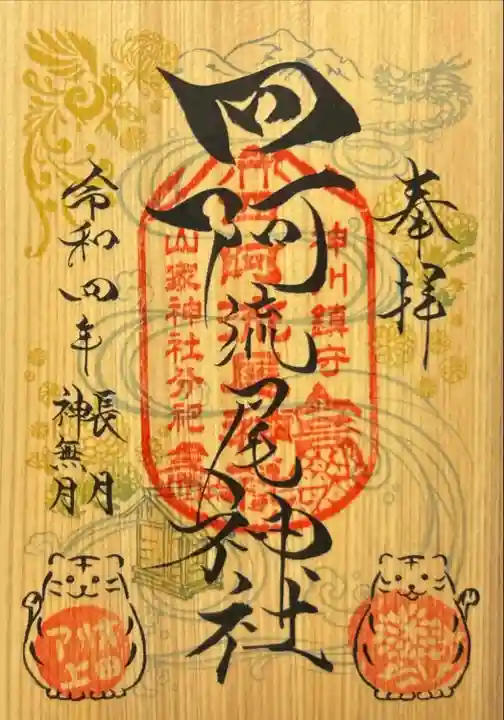 奉拝
四阿流尾神社
神川鎮守
山家神社分祀
令和四年
長月
神無月